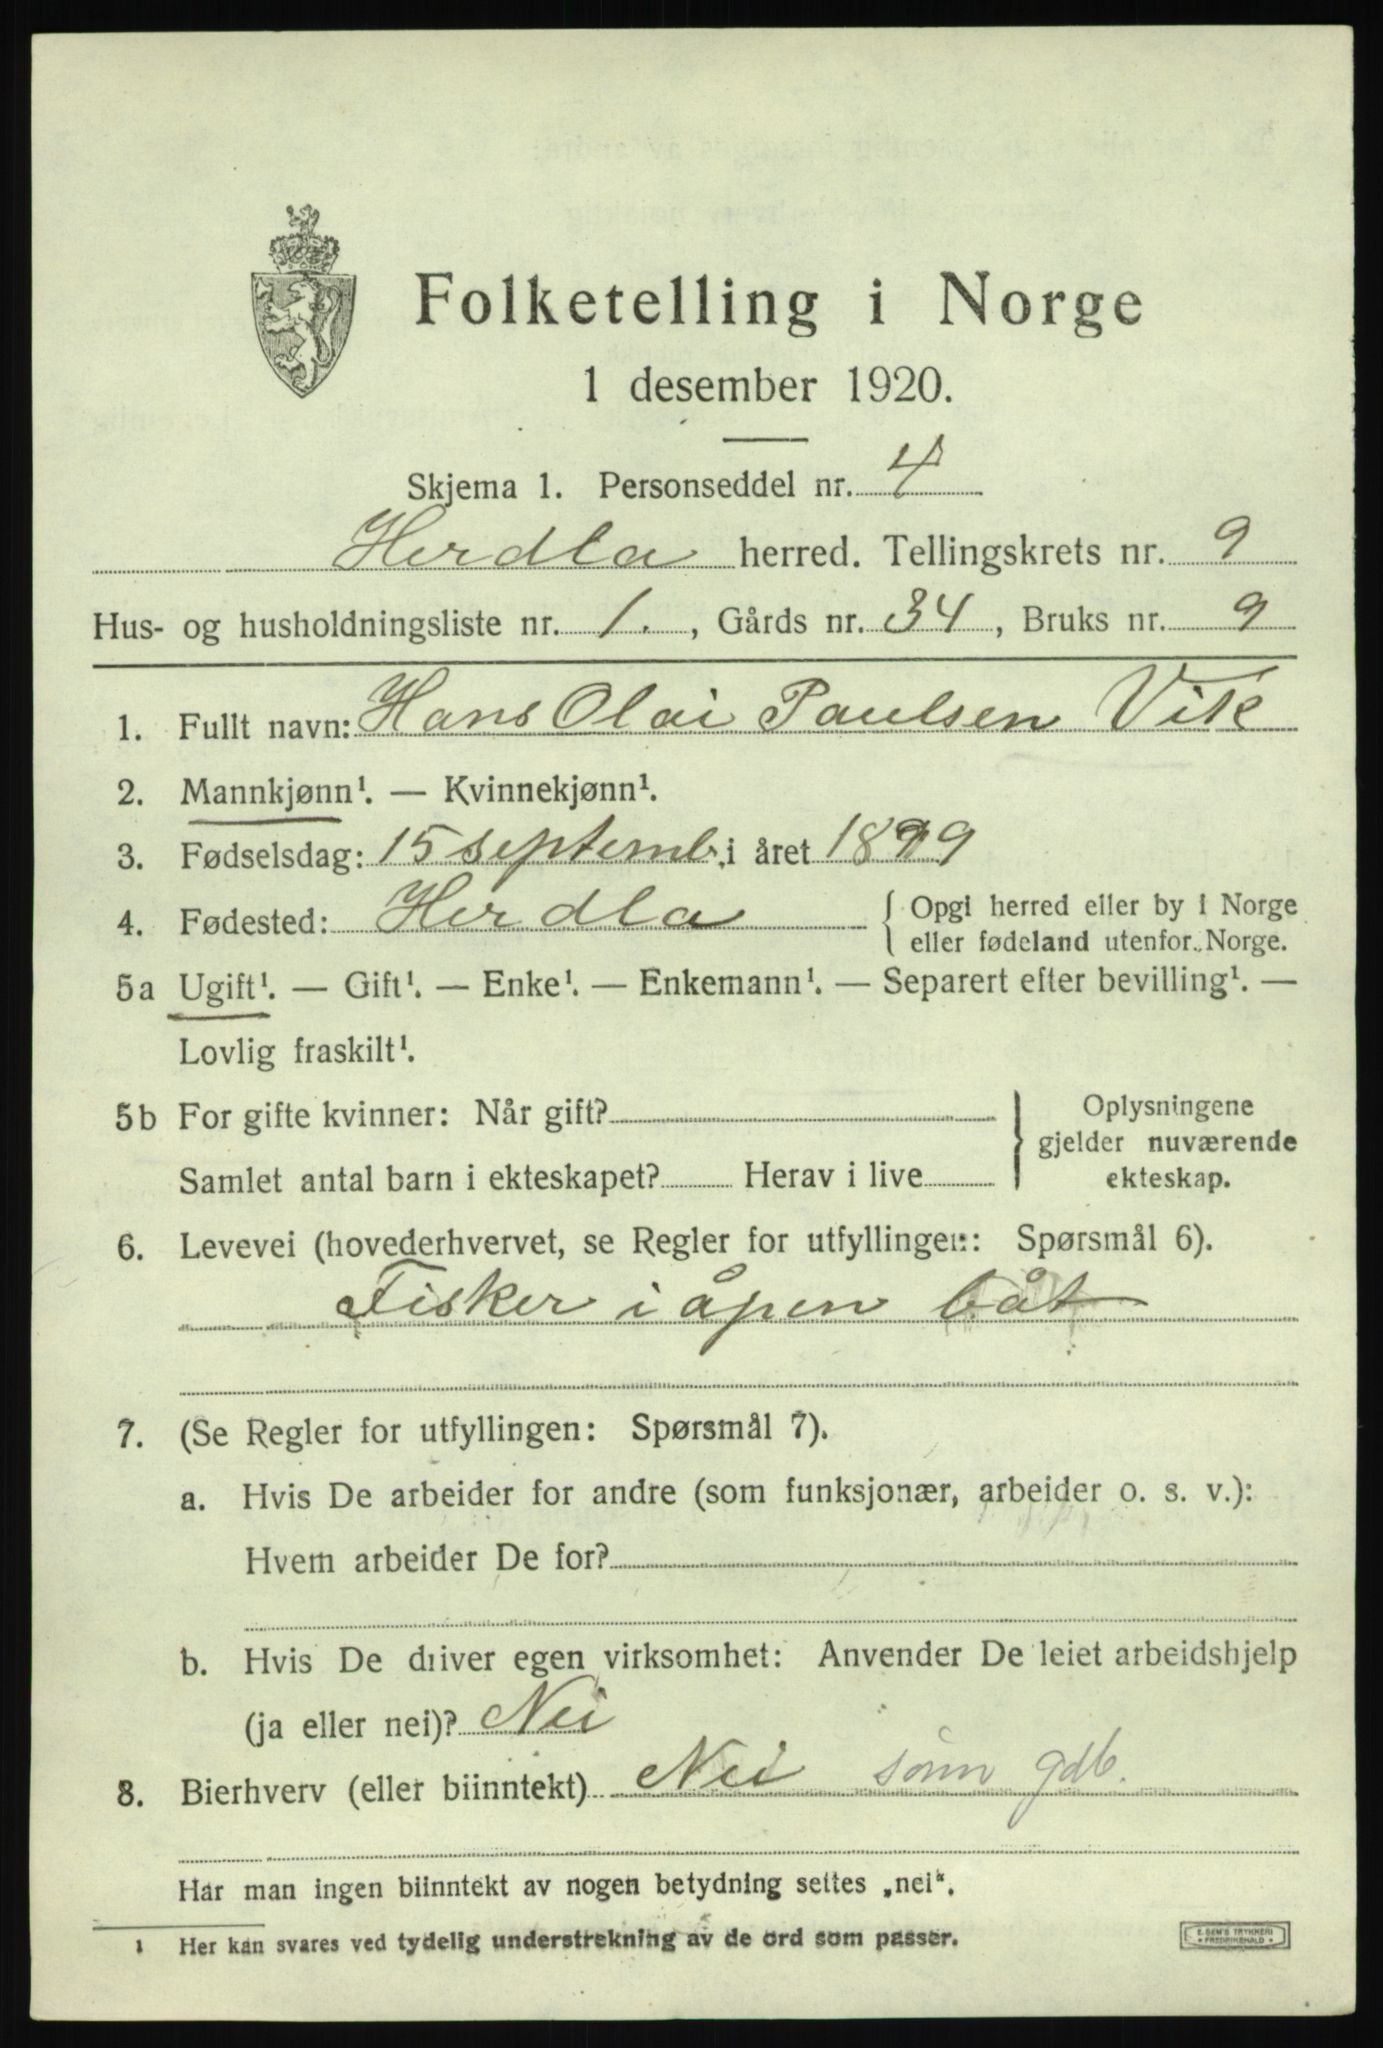 Folketelling i Norge
1 desember 1920.
Skjema 1. Personseddel nr. 4
Herdla herred. Tellingskrets nr. 9
Hus- og husholdningsliste nr. 1. , Gårds nr. 34, Bruks nr. 9
1. Fullt navn: Hans Olai Paulsen Vik
2. Mannkjønn¹. — Kvinnekjønn¹.
3. Fødselsdag: 15 septemb. i året 1899
4. Fødested: Herdla { Opgi herred eller by i Norge
eller fødeland utenfor Norge.
5a Ugift¹. — Gift¹. — Enke¹. — Enkemann¹. — Separert efter bevilling¹. —
Lovlig fraskilt¹.
5b For gifte kvinner: Når gift? } Oplysningene
gjelder nuværende
Samlet antal barn i ekteskapet? Herav i live ekteskap.
6. Levevei (hovederhvervet, se Regler for utfyllingen: Spørsmål 6).
Fisker i åpen båt
7. (Se Regler for utfyllingen: Spørsmål 7).
a. Hvis De arbeider for andre (som funksjonær, arbeider o. s. v.):
Hvem arbeider De for?
b. Hvis De driver egen virksomhet: Anvender De leiet arbeidshjelp
(ja eller nei)? Nei
8. Bierhverv (eller biinntekt) Nei sønn gdb.
Har man ingen biinntekt av nogen betydning settes „nei“.
1 Her kan svares ved tydelig understrekning av de ord som passer.
E. SEM'S TRYKKERI
FREDRIKSHALD